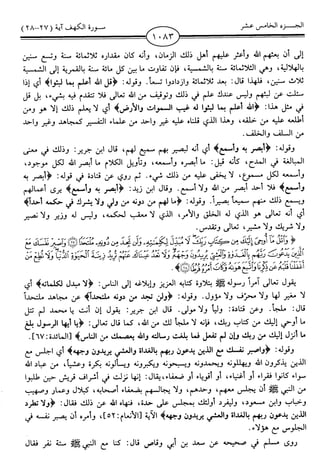 الجـزء الخامس عشر
١٠٨٣
سورة الكهف آية (٢٧-٢٨)
إلى أن بعثهم الله وأعثر عليهم أهل ذلك الزمان، وأنه كان مقداره ثلاثمائة سنة وتسع سنين
بالهلالية، وهي الثلاثمائة سنة بالشمسية، فإن تفاوت ما بين كل مائة سنة بالقمرية إلى الشمسية
ثلاث سنين، فلهذا قال: بعد ثلاثمائة وازدادوا تسعاً. وقوله: ﴿قل الله أعلم بما لبثوا﴾ أي إذا
سئلت عن لبثهم وليس عندك علم في ذلك وتوقيف من الله تعالى فلا تتقدم فيه بشيء، بل قل
في مثل هذا: ﴿الله أعلم بما لبثوا له غيب السموات والأرض﴾ أي لا يعلم ذلك إلا هو ومن
أطلعه عليه من خلقه، وهذا الذي قلناه عليه غير واحد من علماء التفسير كمجاهد وغير واحد
من السلف والخلف.
وقوله: ﴿أبصر به وأسمع﴾ أي أنه لبصير بهم سميع لهم، قال ابن جرير: وذلك في معنى
المبالغة في المدح، كأنه قيل: ما أبصره وأسمعه، وتأويل الكلام ما أبصر الله لكل موجود،
وأسمعه لكل مسموع، لا يخفى عليه من ذلك شيء. ثم روي عن قتادة في قوله: ﴿أبصر به
وأسمع﴾ فلا أحد أبصر من الله ولا أسمع. وقال ابن زيد: ﴿أبصر به وأسمع﴾ يرى أعمالهم
ويسمع ذلك منهم سميعاً بصيراً. وقوله: ﴿ما لهم من دونه من ولي ولا يشرك في حكمه أحداً﴾
أي أنه تعالى هو الذي له الخلق والأمر، الذي لا معقب لحكمه، وليس له وزير ولا نصير
ولا شريك ولا مشير، تعالى وتقدس.
وَاتْلُ مَا أُوحِيَ إِلَيْكَ مِن كِتَابِ رَبِّكَ لَا مُبَدِّلَ لِكَلِمَاتِهِ وَلَن تَجِدَ مِن دُونِهِ مُلْتَحَدًا ﴿٢٧﴾ وَاصْبِرْ نَفْسَكَ مَعَ
الَّذِينَ يَدْعُونَ رَبَّهُم بِالْغَدَاةِ وَالْعَشِيِّ يُرِيدُونَ وَجْهَهُ وَلَا تَعْدُ عَيْنَاكَ عَنْهُمْ تُرِيدُ زِينَةَ الْحَيَاةِ الدُّنْيَا وَلَا تُطِعْ مَنْ
أَغْفَلْنَا قَلْبَهُ عَن ذِكْرِنَا وَاتَّبَعَ هَوَاهُ وَكَانَ أَمْرُهُ فُرُطًا ﴿٢٨﴾
يقول تعالى آمراً رسوله ﷺ بتلاوة كتابه العزيز وإبلاغه إلى الناس: ﴿لا مبدل لكلماته﴾ أي
لا مغير لها ولا محرف ولا مؤول. وقوله: ﴿ولن تجد من دونه ملتحداً﴾ عن مجاهد ملتحداً
قال: ملجأ. وعن قتادة: ولياً ولا مولى. قال ابن جرير: يقول إن أنت يا محمد لم تتل
ما أوحي إليك من كتاب ربك، فإنه لا ملجأ لك من الله، كما قال تعالى: ﴿يا أيها الرسول بلغ
ما أنزل إليك من ربك وإن لم تفعل فما بلغت رسالته والله يعصمك من الناس﴾ [المائدة: ٦٧].
وقوله: ﴿واصبر نفسك مع الذين يدعون ربهم بالغداة والعشي يريدون وجهه﴾ أي اجلس مع
الذين يذكرون الله ويهللونه ويحمدونه ويسبحونه ويكبرونه ويسألونه بكرة وعشياً، من عباد الله
سواء كانوا فقراء أو أغنياء، أو أقوياء أو ضعفاء، يقال: إنها نزلت في أشراف قريش حين طلبوا
من النبي ﷺ أن يجلس معهم، وحدهم، ولا يجالسهم بضعفاء أصحابه، كبلال وعمار وصهيب
وخباب وابن مسعود، وليفرد أولئك بمجلس على حدة، فنهاه الله عن ذلك فقال: ﴿ولا تطرد
الذين يدعون ربهم بالغداة والعشي يريدون وجهه﴾ الآية [الأنعام: ٥٢]، وأمره أن يصبر نفسه في
الجلوس مع هؤلاء.
روى مسلم في صحيحه عن سعد بن أبي وقاص قال: كنا مع النبي ﷺ ستة نفر فقال